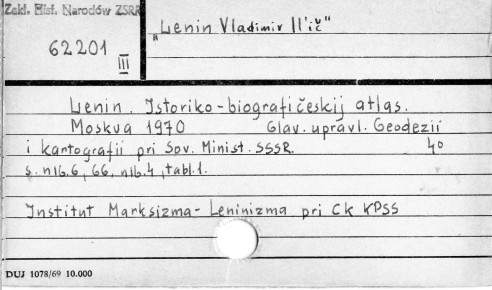 Zakł. Hist. Narodów ZSRR
"Lenin Vladimir Il'ič"
62201
III
Lenin. Istoriko-biografičeskij atlas.
Moskva 1970 Glav. upravl. Geodezii
i kartografii pri Sov. Minist. SSSR. 4°
s. nlb.6, 66, nlb.4, tabl.1.
Institut Marksizma-Leninizma pri Ck KPSS
DUJ 1078/69 10.000